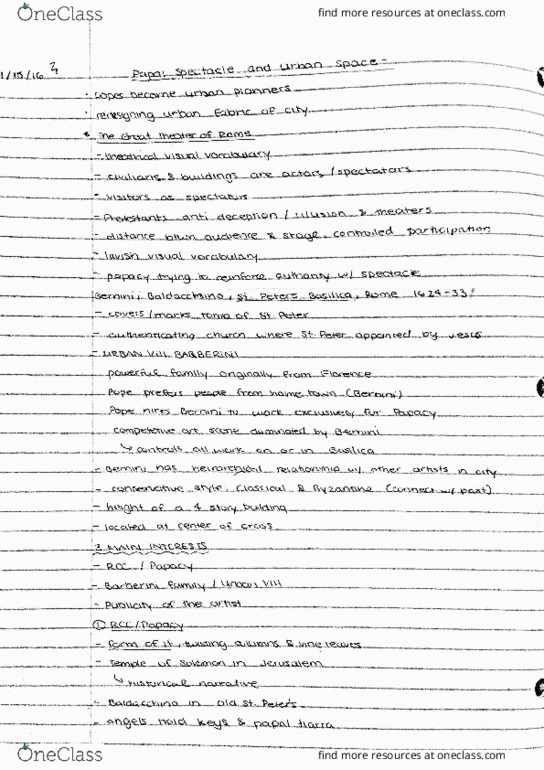 OneClass
find more resources at oneclass.com
1/15/16
Papal Spectacle and Urban Space -
· popes become urban planners
· redesigning urban fabric of city
* The Great Theater of Rome
- theatrical visual vocabulary
- civilians & buildings are actors / spectators
- visitors as spectators
- Protestants anti deception / illusion & theaters
- distance btwn audience & stage, controlled participation
- lavish visual vocabulary
- papacy trying to reinforce authority w/ spectacle
Bernini, Baldacchino, St. Peters Basilica, Rome 1624-33
- covers/marks tomb of St Peter
- authenticating church where St. Peter appointed by Jesus
- URBAN VIII BARBERINI
powerful family originally from Florence
Pope prefers people from home town (Bernini)
Pope hires Bernini to work exclusively for Papacy
competitive art scene dominated by Bernini
↳ controls all work on or in Basilica
- Bernini has heirarchical relationship w/ other artists in city
- conservative style, Classical & Byzantine (connect w/ past)
- height of a 4 story building
- located at center of cross
3 MAIN INTERESTS
- RCC / Papacy
- Barberini Family / Urban VIII
- Publicity of the artist
① RCC/Papacy
- form of it, twisting columns & vine leaves
- Temple of Solomon in Jerusalem
↳ historical narrative
- Baldacchino in old St. Peter's
- angels hold keys & papal tiarra
OneClass
find more resources at oneclass.com